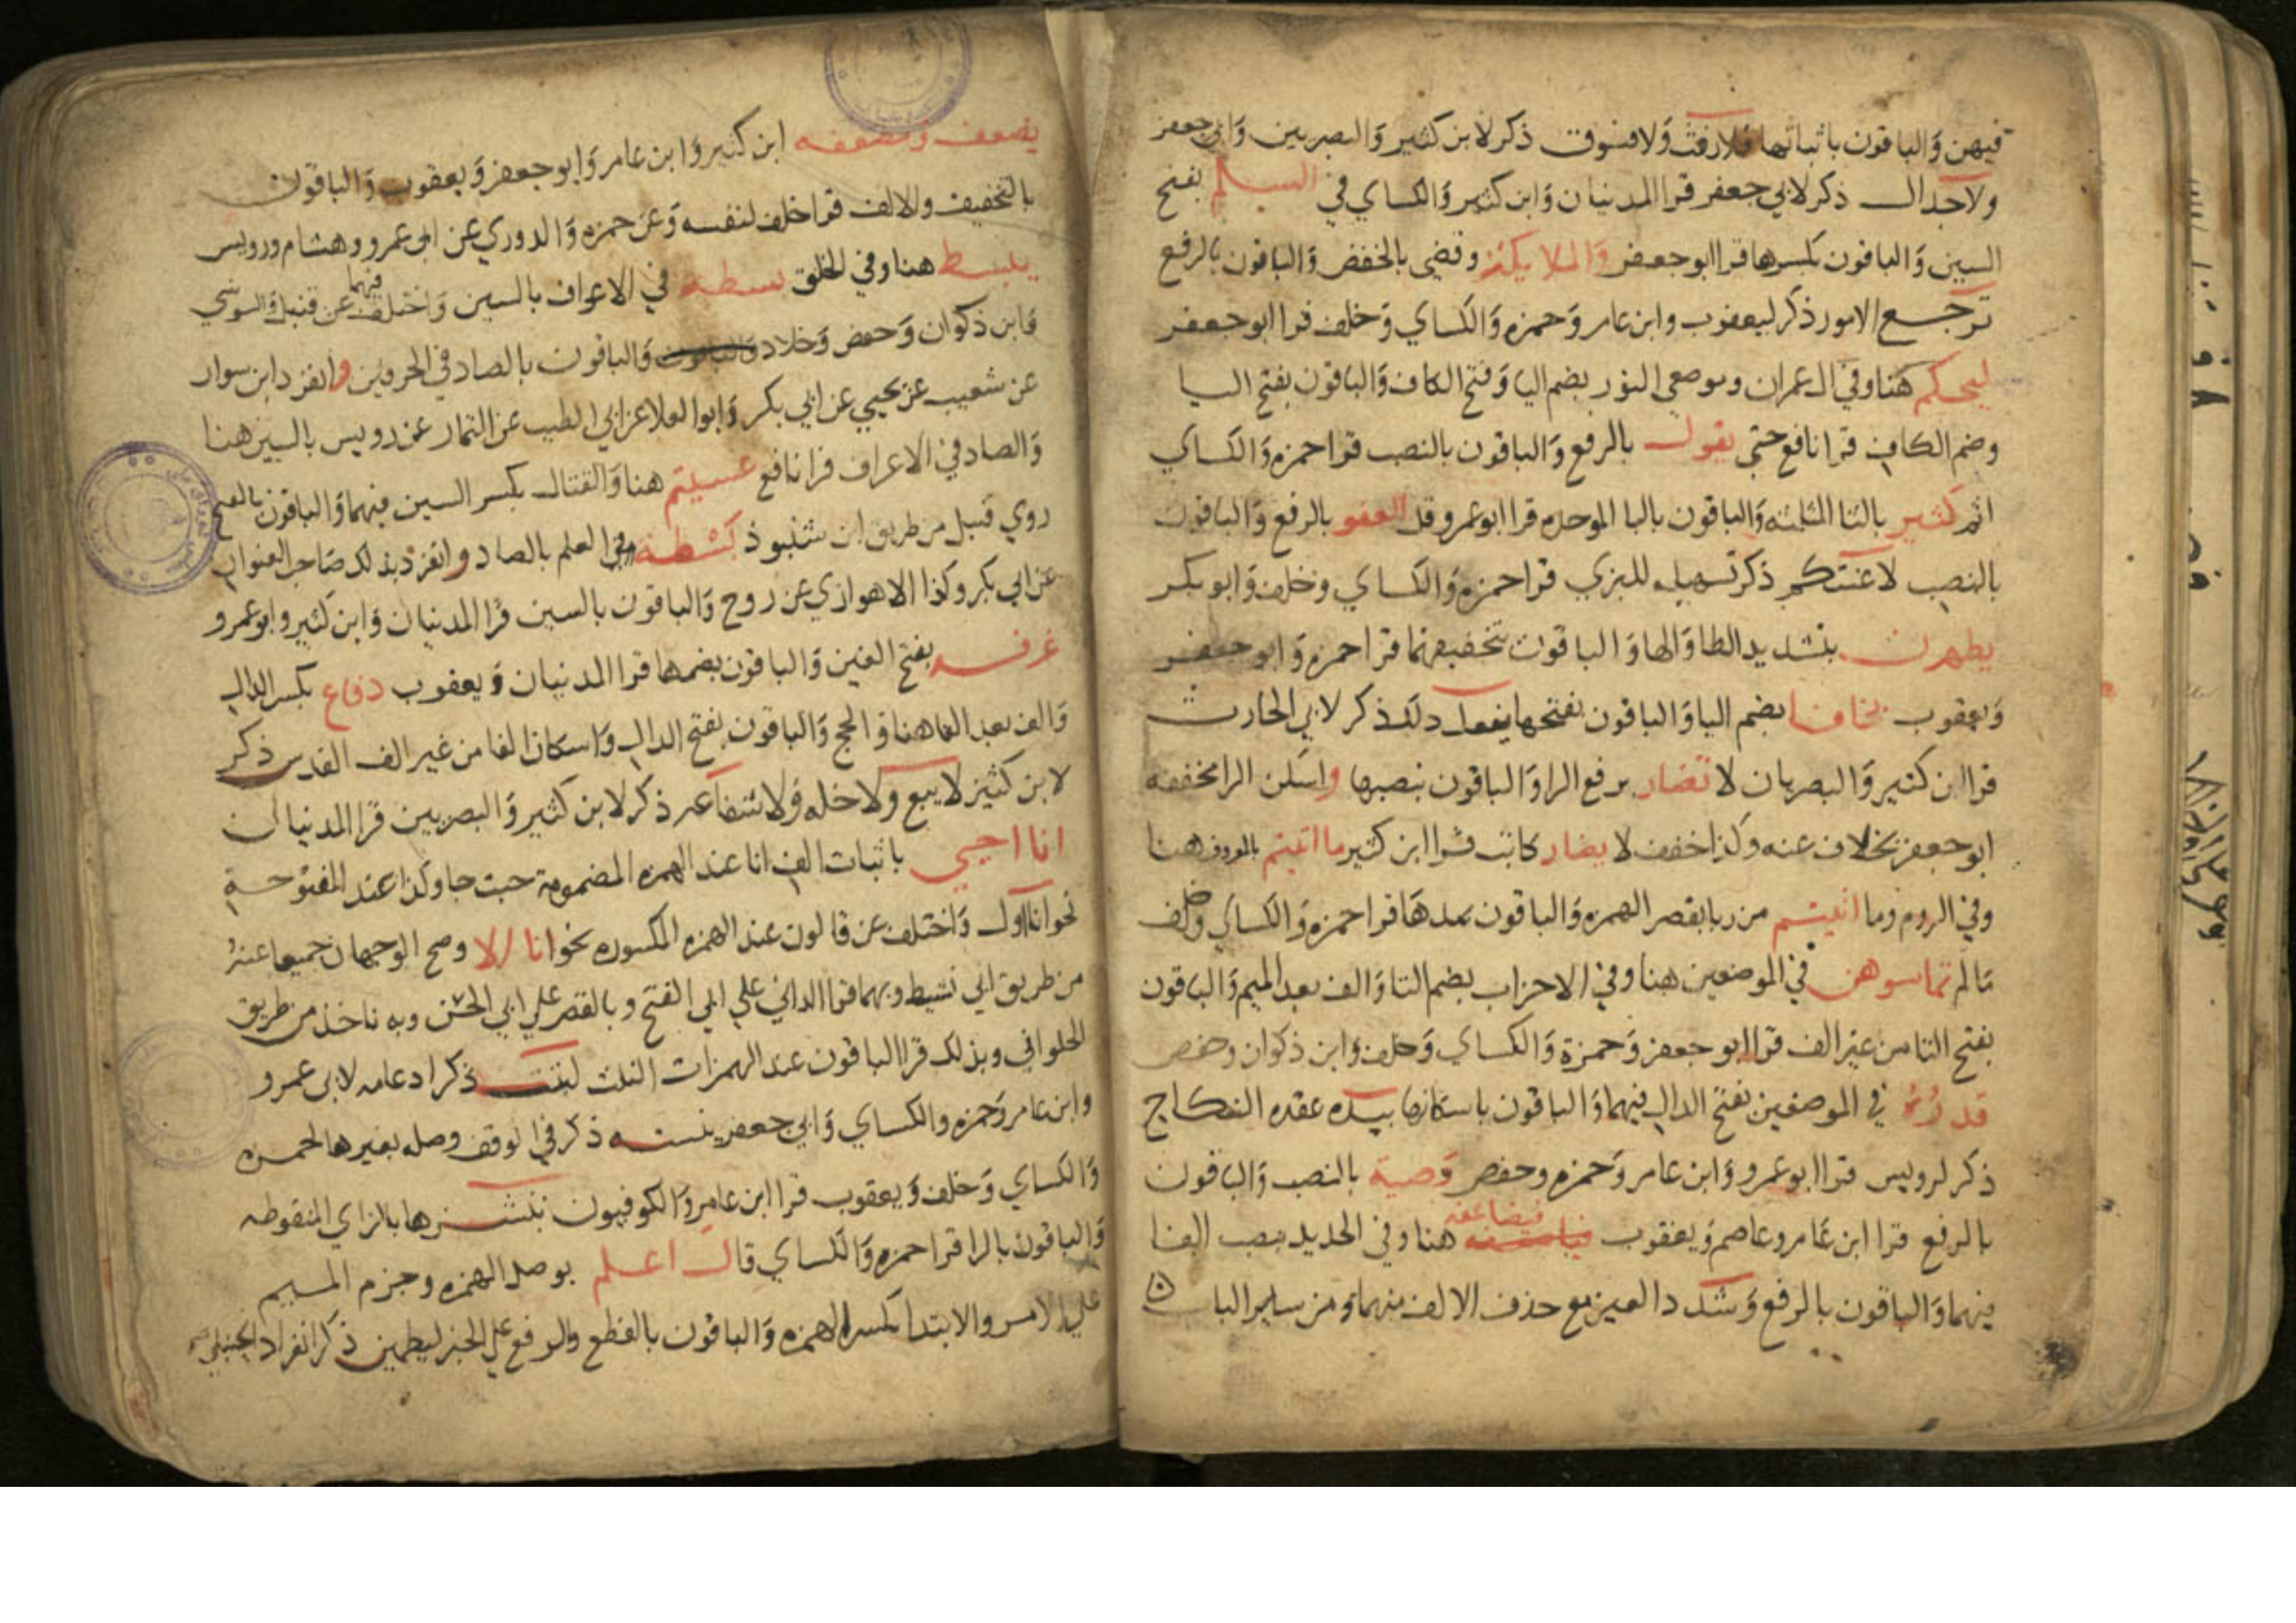 فيهن والباقون باثباتها فلا رفث ولا فسوق ذكر لابن كثير والبصريين وابي جعفر
ولا جدال ذكر لابي جعفر قرا المدنيان وابن كثير والكساي في السلم بفتح
السين والباقون بكسرها قرا ابو جعفر والملايكة وقضي بالخفض والباقون بالرفع
ترجع الامور ذكر ليعقوب وابن عامر وحمزه والكساي وخلف قرا ابو جعفر
ليحكم هنا وفي ال عمران وموضعي النور بضم اليا وفتح الكاف والباقون بفتح اليا
وضم الكاف قرا نافع حتي يقول بالرفع والباقون بالنصب قرا حمزه والكساي
اثم كثير بالثا المثلثه والباقون بالبا الموحده قرا ابو عمرو قل العفو بالرفع والباقون
بالنصب لاعنتكم ذكر تسهيله للبزي قرا حمزه والكساي وخلف وابو بكر
يطهرن بتشديد الطا والها والباقون بتخفيفهما قرا حمزه وابو جعفر
ويعقوب يخافا بضم اليا والباقون بفتحها يفعل ذلك ذكر لابي الحارث
قرا ابن كثير والبصريان لا تضار برفع الرا والباقون بنصبها واسكن الرا مخففه
ابو جعفر بخلاف عنه وكذا خفف لا يضار كاتب قرا ابن كثير ما اتيتم بالمعروف هنا
وفي الروم وما اتيتم من ربا بقصر الهمزه والباقون بمدها قرا حمزه والكساي وخلف
ما لم تماسوهن في الموضعين هنا وفي الاحزاب بضم التا والف بعد الميم والباقون
بفتح التا من غير الف قرا ابو جعفر وحمزة والكساي وخلف وابن ذكوان وحفص
قدره في الموضعين بفتح الدال فيهما والباقون باسكانها بيده عقده النكاح
ذكر لرويس قرا ابو عمرو وابن عامر وحمزه وحفص وصية بالنصب والباقون
بالرفع قرا ابن عامر وعاصم ويعقوب فيضاعفه هنا وفي الحديد بنصب الفا
فيهما والباقون بالرفع وشدد العين مع حذف الالف منهما ومن ساير الباب
يضعف ومضعفه ابن كثير وابن عامر وابو جعفر ويعقوب والباقون
بالتخفيف والالف قرا خلف لنفسه وعن حمزه والدوري عن ابي عمرو وهشام ورويس
يبسط هنا وفي الخلق بسطه في الاعراف بالسين واختلف فيهما عن قنبل والسوسي
وابن ذكوان وحفص وخلاد والباقون بالصاد في الحرفين وانفرد ابن سوار
عن شعيب عن يحيي عن ابي بكر وابوا العلا عن ابي الطيب عن التمار عن رويس بالسين هنا
والصاد في الاعراف قرا نافع عسيتم هنا والقتال بكسر السين فيهما والباقون بالفتح
روي قنبل من طريق ابن شنبوذ بسطة في العلم بالصاد وانفرد بذلك صاحب العنوان
عن ابي بكر وكذا الاهوازي عن روح والباقون بالسين قرا المدنيان وابن كثير وابو عمرو
غرفه بفتح الغين والباقون بضمها قرا المدنيان ويعقوب دفاع بكسر الدال
والف بعد الفا هنا والحج والباقون بفتح الدال واسكان الفا من غير الف القدس ذكر
لابن كثير لا بيع ولا خله ولا شفاعه ذكر لابن كثير والبصريين قرا المدنيان
انا احيي باثبات الف انا عند الهمزه المضمومة حيث جا وكذا عند المفتوحة
نحو انا اول واختلف عن قالون عند الهمزه المكسوره نحو انا الا وصح الوجهان جميعا عنه
من طريق ابي نشيط وبهما قرا الداني علي ابي الفتح وبالقصر علي ابي الحسن وبه ناخذ من طريق
الحلواني وبذلك قرا الباقون عند الهمزات الثلث لبثت ذكر ادغامه لابي عمرو
وابن عامر وحمزه والكساي وابي جعفر يتسنه ذكر في الوقف وصله بغيرها لحمزه
والكساي وخلف ويعقوب قرا ابن عامر والكوفيون ننشزها بالزاي المنقوطه
والباقون بالرا قرا حمزه والكساي قال اعلم بوصل الهمزه وجزم الميم
علي الامر والابتدا بكسر الهمزه والباقون بالقطع والرفع علي الخبر ليطمين ذكر انفراد الحنبلي